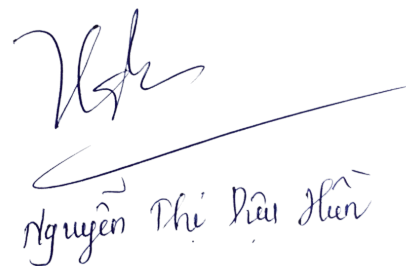 Nguyễn Thị Diệu Hiền